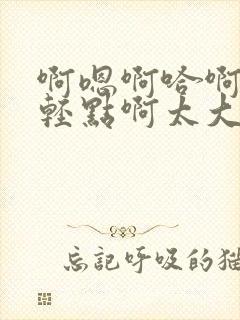 啊嗯啊哈啊
轻點啊太大
忘記呼吸的猫